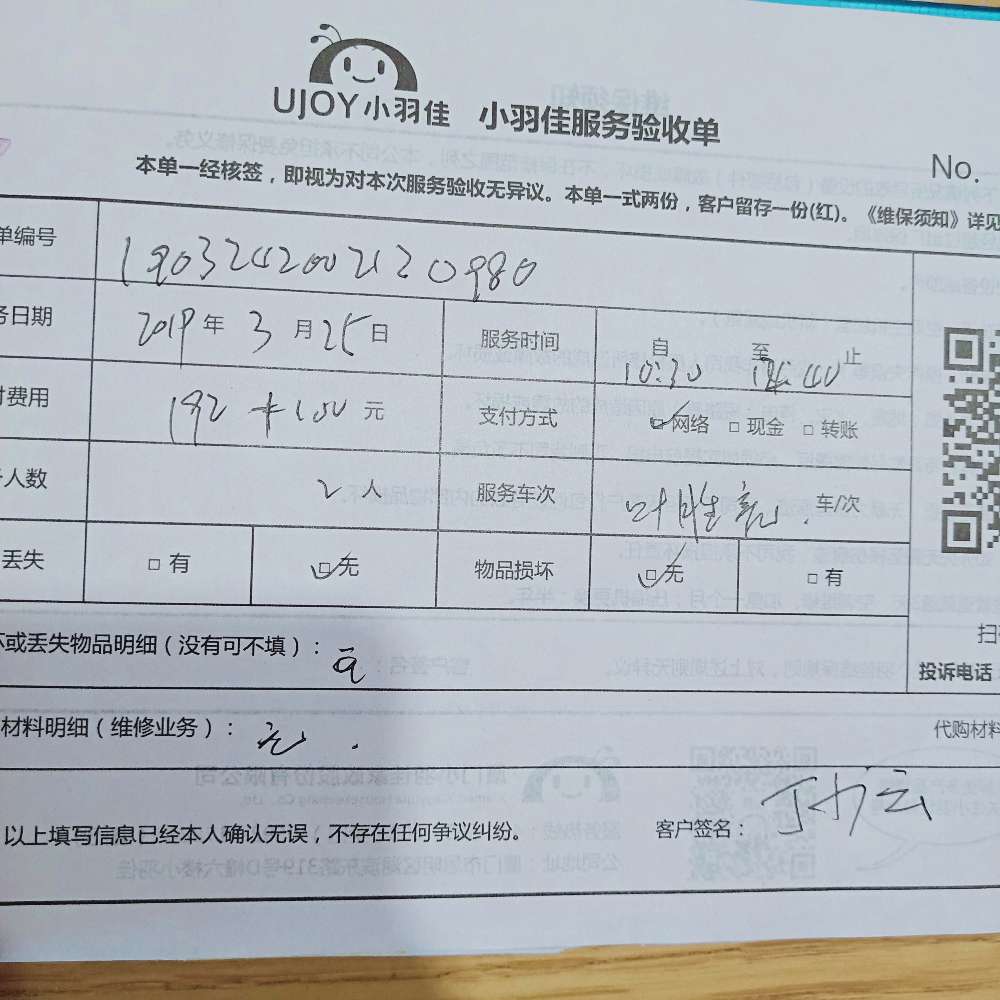 UJOY小羽佳 小羽佳服务验收单
No.
本单一经核签，即视为对本次服务验收无异议。本单一式两份，客户留存一份(红)。《维保须知》详见
单编号 1903242002120980
务日期 2019年3月25日 服务时间 自10:30 至 止
付费用 192 元 支付方式 ☑网络 □现金 □转账
人数 2人 服务车次 车/次
丢失 □有 ☑无 物品损坏 ☑无 □有
扫
坏或丢失物品明细（没有可不填）：无
投诉电话
材料明细（维修业务）：无.
代购材料
以上填写信息已经本人确认无误，不存在任何争议纠纷。 客户签名：